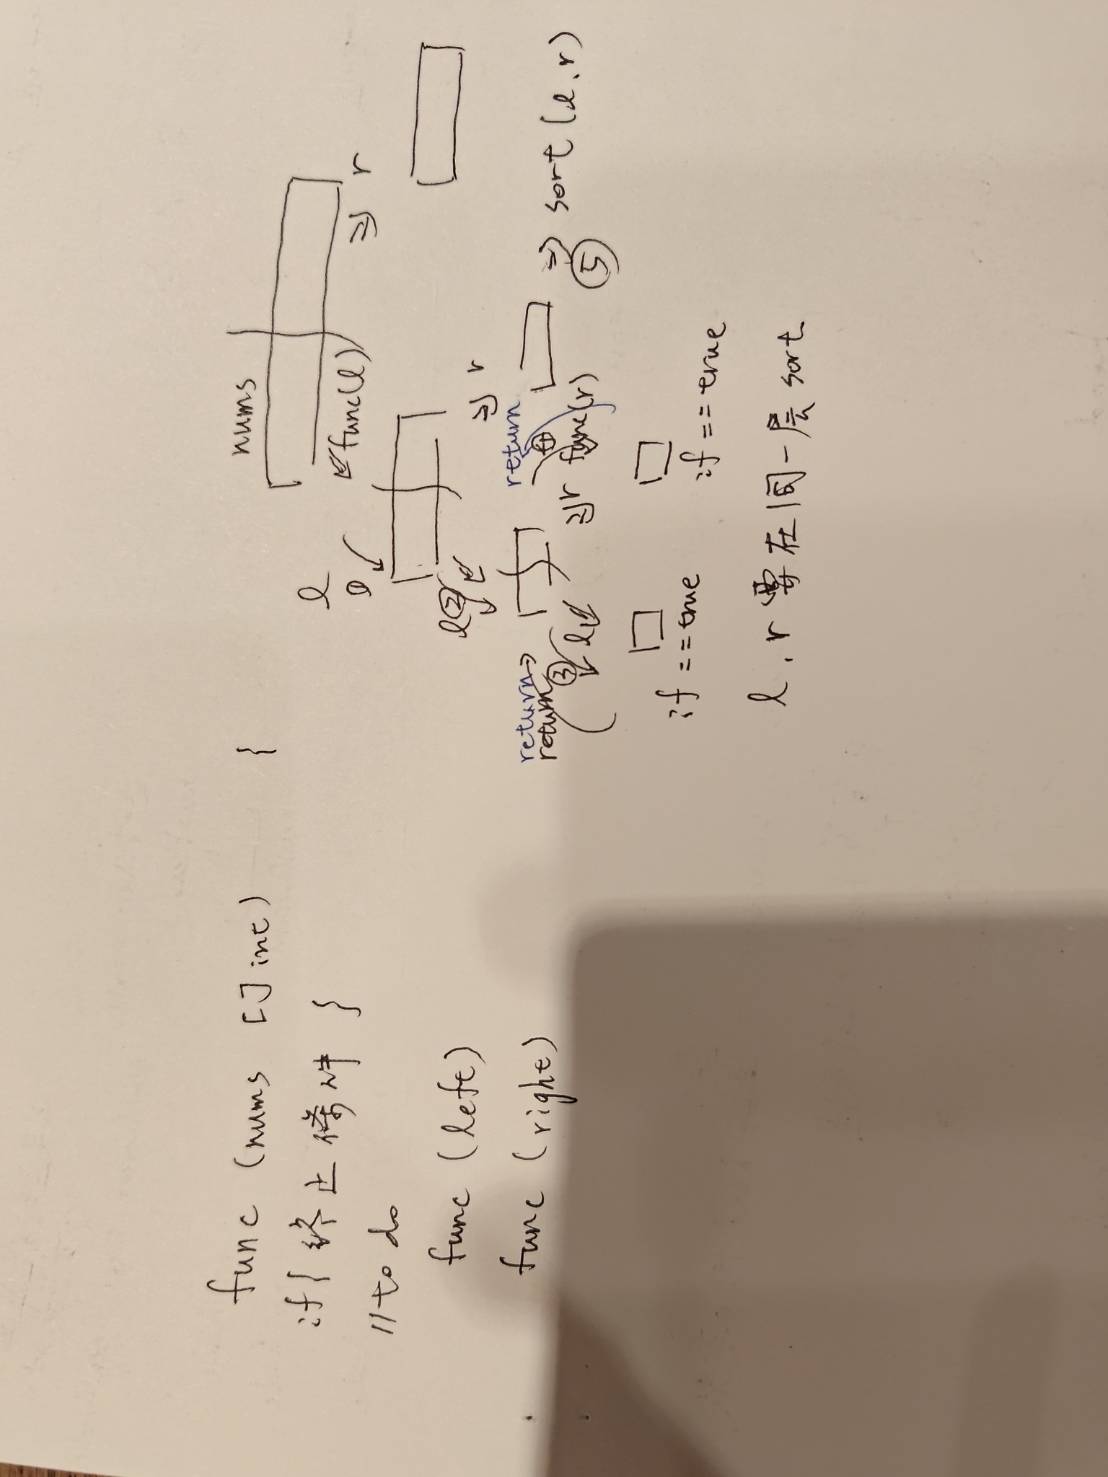 func (nums []int) {
if { 終止條件 }
//to do
func (left)
func (right)
nums
l
l
func(l)
r
l
②
r
return
return
③
l
r
func(r)
④
return
⇒ sort (l, r)
⑤
if == true
if == true
l, r 要在同一层 sort